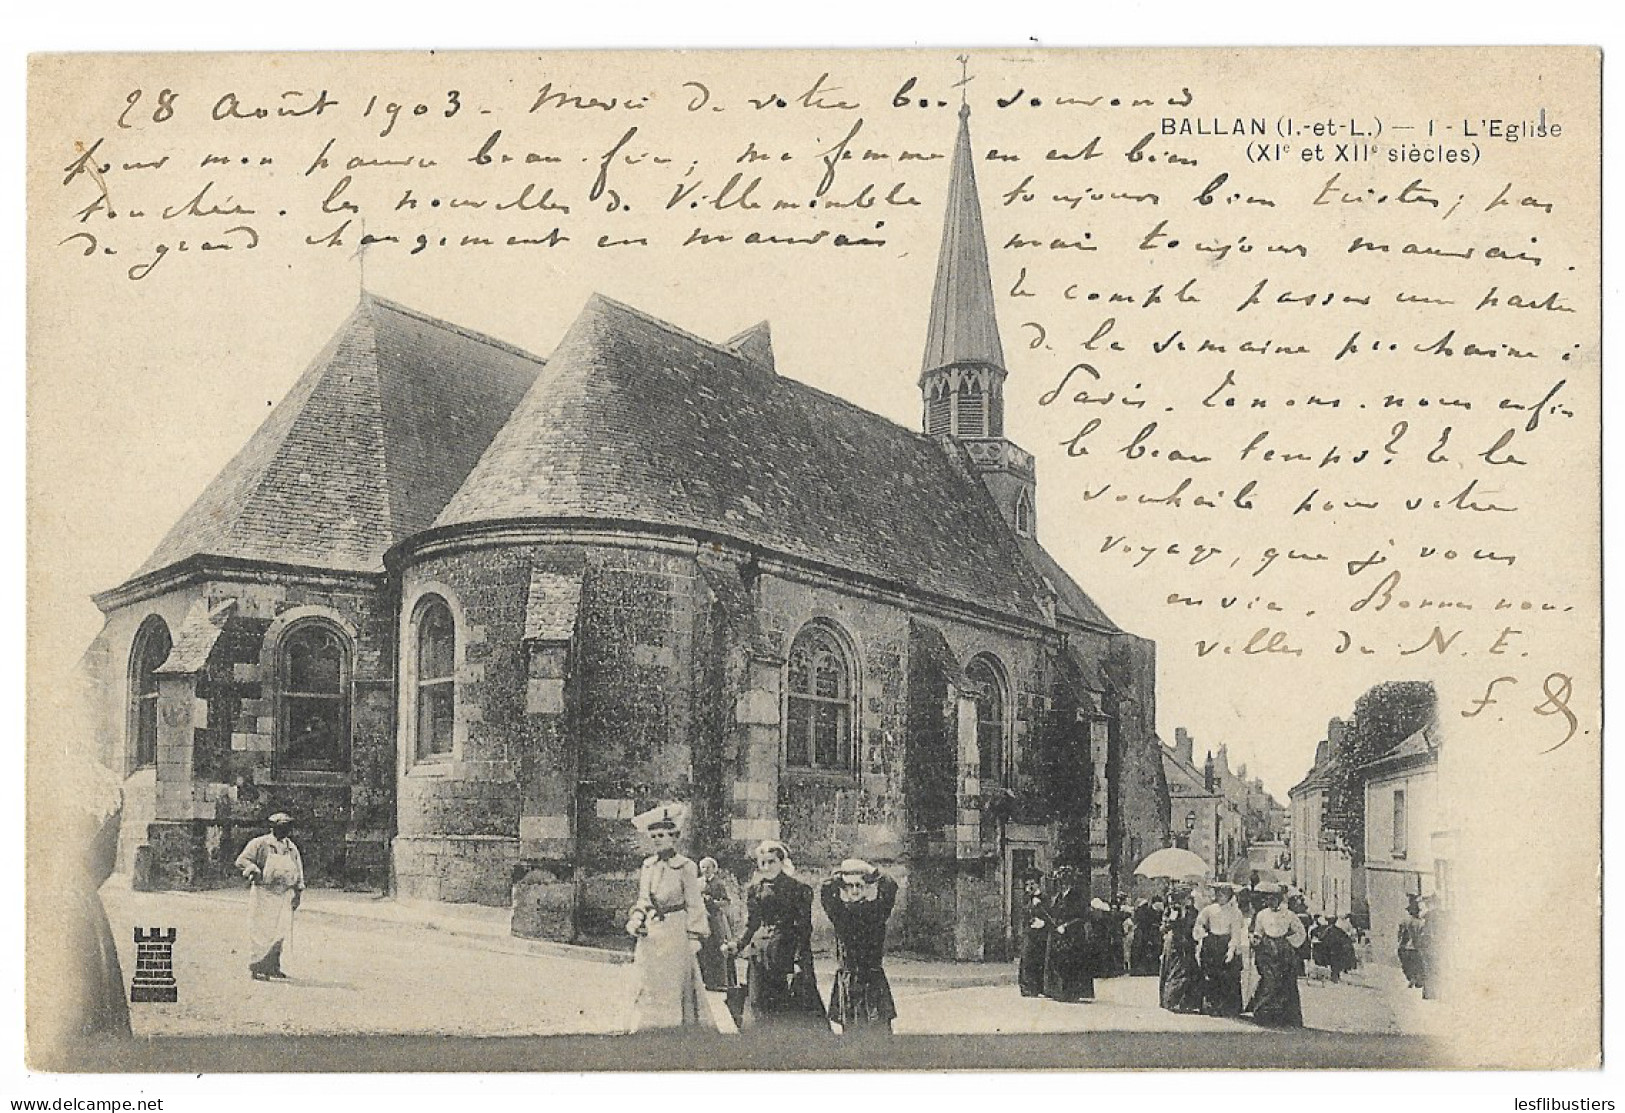 28 Août 1903 - Merci de votre bon souvenir
BALLAN (I.-et-L.) — 1 - L'Eglise
(XIe et XIIe siècles)
pour mon pauvre beau-frère, ma femme en est bien
touchée. Les nouvelles de Villemomble toujours bien tristes; pas
de grand changement en mauvais, mais toujours mauvais.
Je compte passer une partie
de la semaine prochaine à
Paris. Tenons-nous enfin
le beau temps? Je le
souhaite pour votre
voyage, que je vous
envie. Bonnes nou-
velles de N. E.
F.
lesflibustiers